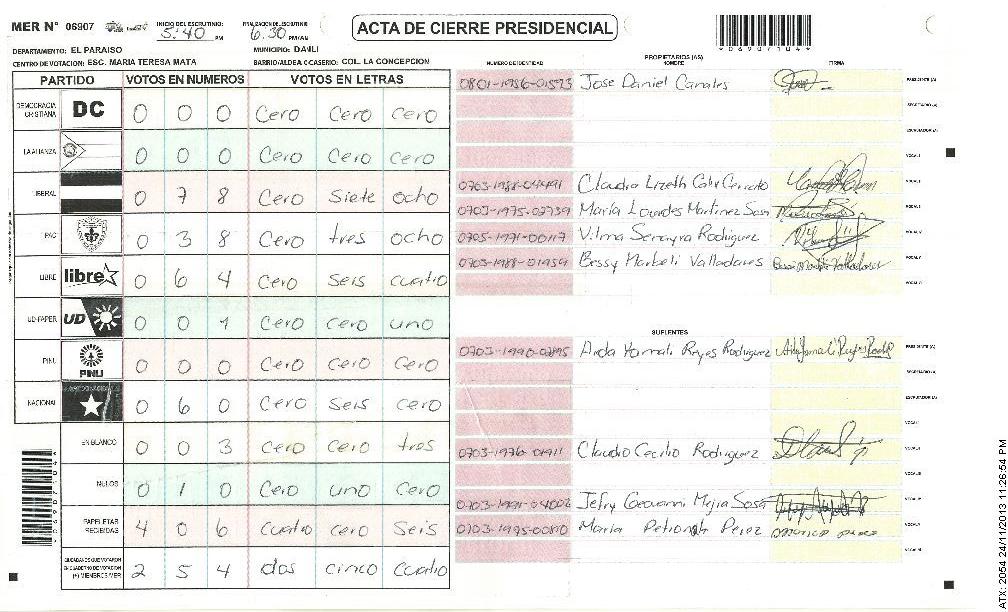 MER N° 06907 INICIO DEL ESCRUTINIO: 5:40 PM FINALIZACION DEL ESCRUTINIO 6:30 PM/AM
ACTA DE CIERRE PRESIDENCIAL
*06907104*
DEPARTAMENTO: EL PARAISO MUNICIPIO: DANLI
CENTRO DE VOTACION: ESC. MARIA TERESA MATA BARRIO/ALDEA O CASERIO: COL. LA CONCEPCION
PARTIDO VOTOS EN NUMEROS VOTOS EN LETRAS
DEMOCRACIA CRISTIANA DC 0 0 0 Cero Cero Cero
LA ALIANZA 0 0 0 Cero Cero Cero
LIBERAL 0 7 8 Cero Siete ocho
PAC 0 3 8 Cero tres ocho
LIBRE libre 0 6 4 Cero Seis cuatro
UD-FAPER UD 0 0 1 Cero Cero uno
PINU PINU 0 0 0 Cero Cero Cero
NACIONAL 0 6 0 Cero Seis cero
EN BLANCO 0 0 3 Cero cero tres
NULOS 0 1 0 Cero uno Cero
PAPELETAS RECIBIDAS 4 0 6 cuatro cero Seis
CIUDADANOS QUE VOTARON EN CUADERNO DE VOTACION (+) MIEMBROS MER 2 5 4 dos cinco cuatro
PROPIETARIOS (AS)
NUMERO DE IDENTIDAD NOMBRE FIRMA
0801-1956-01573 Jose Daniel Canales PRESIDENTE (A)
SECRETARIO (A)
ESCRUTADOR (A)
VOCAL I
0703-1988-04491 Claudia Lizeth
0703-1975-02739 Maria Lourdes Martinez Sosa
0705-1971-00117 Vilma Rodriguez
0703-1988-01959 Bessy Marbeli Valladares
SUPLENTES
0703-1990-02895 Reyes Rodriguez PRESIDENTE (A)
SECRETARIO (A)
ESCRUTADOR (A)
VOCAL I
0703-1976-01911 Claudio Cecilio Rodriguez
0703-1991-04002 Jefry Geovanni Mejia Sosa
0703-1995-00810 Maria Perez
ATX: 2054 24/11/2013 11:26:54 PM